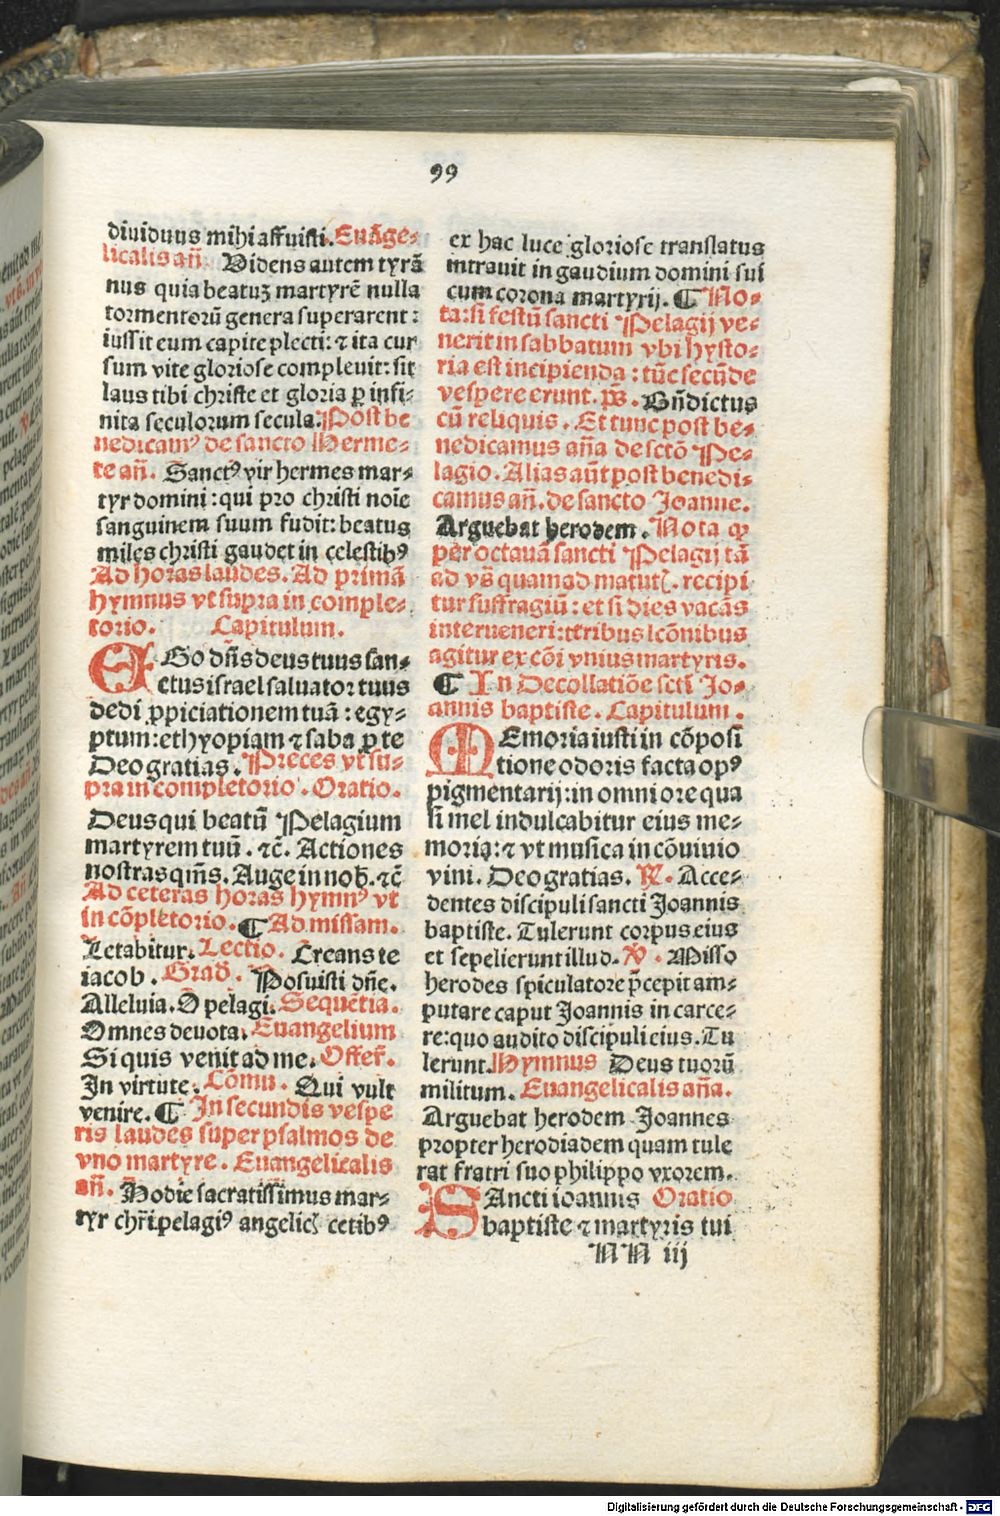 99
diuiduus mihi affuisti. Euāge-
licalis añ. Uidens autem tyrā
nus quia beatuꝫ martyrē nulla
tormentorū genera superarent:
iussit eum capite plecti: ⁊ ita cur
sum vite gloriose compleuit: sit
laus tibi christe et gloria ꝑ infi-
nita seculorum secula. Post be
nedicamꝰ de sancto Herme-
te añ. Sanctꝰ vir hermes mar-
tyr domini: qui pro christi noīe
sanguinem suum fudit: beatus
miles christi gaudet in celestibꝰ
Ad horas laudes. Ad primā
hymnus vt supra in comple-
torio. Capitulum.
Ego dñs deus tuus san-
ctus israel saluator tuus
dedi ꝓpiciationem tuā: egy-
ptum: ethyopiam ⁊ saba ꝓ te
Deo gratias. Preces vt su-
pra in completorio. Oratio.
Deus qui beatū Pelagium
martyrem tuū. ⁊c̄. Actiones
nostras qm̄s. Auge in nob̄. ⁊c̄
Ad ceteras horas hymnꝰ vt
in cōpletorio. ¶ Ad missam.
Letabitur. Lectio. Creans te
iacob. Grad̄. Posuisti dñe.
Alleluia. O pelagi. Sequētia.
Omnes deuota. Euangelium
Si quis venit ad me. Offer̄.
In virtute. Cōmu. Qui vult
venire. ¶ In secundis vespe
ris laudes super psalmos de
vno martyre. Euangelicalis
añ. Hodie sacratissimus mar-
tyr chr̄i pelagiꝰ angelicꝭ cetibꝰ
ex hac luce gloriose translatus
intrauit in gaudium domini sui
cum corona martyrij. ¶ No-
ta: si festū sancti Pelagij ve-
nerit in sabbatum vbi hysto-
ria est incipienda: tūc secūde
vespere erunt. p̄s. Bn̄dictus
cū reliquis. Et tunc post be-
nedicamus aña de sctō Pe-
lagio. Alias aūt post benedi-
camus añ. de sancto Joanne.
Arguebat herodem. Nota ꝙ
per octauā sancti Pelagij tā
ad vs̄ quam ad matutꝭ. recipi
tur suffragiū: et si dies vacās
interuenerit: tribus lcōnibus
agitur ex cōi vnius martyris.
¶ In Decollatiōe scti Jo-
annis baptiste. Capitulum.
Memoria iusti in cōposi
tione odoris facta opꝰ
pigmentarij: in omni ore qua
si mel indulcabitur eius me-
moria: ⁊ vt musica in cōuiuio
vini. Deo gratias. ℟. Acce-
dentes discipuli sancti Joannis
baptiste. Tulerunt corpus eius
et sepelierunt illud. ℣. Misso
herodes spiculatore p̄cepit am-
putare caput Joannis in carce-
re: quo audito discipuli eius. Tu
lerunt. Hymnus Deus tuorū
militum. Euangelicalis aña.
Arguebat herodem Joannes
propter herodiadem quam tule
rat fratri suo philippo vxorem.
Sancti ioannis Oratio
baptiste ⁊ martyris tui
NN iij
Digitalisierung gefördert durch die Deutsche Forschungsgemeinschaft - DFG